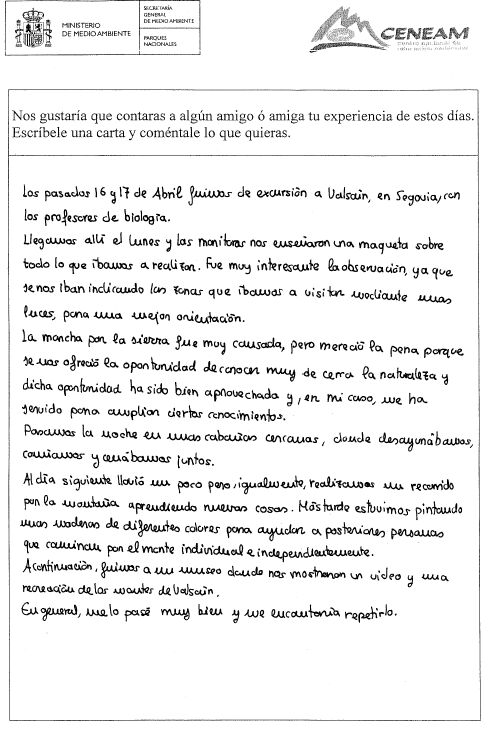 MINISTERIO
DE MEDIO AMBIENTE
SECRETARÍA
GENERAL
DE MEDIO AMBIENTE
PARQUES
NACIONALES
CENEAM
Nos gustaría que contaras a algún amigo ó amiga tu experiencia de estos días.
Escríbele una carta y coméntale lo que quieras.
Los pasados 16 y 17 de Abril fuimos de excursión a Valsaín, en Segovia, con
los profesores de biología.
Llegamos allí el lunes y las monitoras nos enseñaron una maqueta sobre
todo lo que íbamos a realizar. Fue muy interesante la observación, ya que
se nos iban indicando las zonas que íbamos a visitar mediante unas
luces, para una mejor orientación.
La marcha por la sierra fue muy cansada, pero mereció la pena porque
se nos ofreció la oportunidad de conocer muy de cerca la naturaleza y
dicha oportunidad ha sido bien aprovechada y, en mi caso, me ha
servido para ampliar ciertos conocimientos.
Pasamos la noche en unas cabañas cercanas, donde desayunábamos,
comíamos y cenábamos juntos.
Al día siguiente llovió un poco pero, igualmente, realizamos un recorrido
por la montaña aprendiendo nuevas cosas. Más tarde estuvimos pintando
unas maderas de diferentes colores para ayudar a posteriores personas
que caminan por el monte individual e independientemente.
A continuación, fuimos a un museo donde nos mostraron un video y una
recreación de los montes de Valsaín.
En general, me lo pasé muy bien y me encantaría repetirlo.